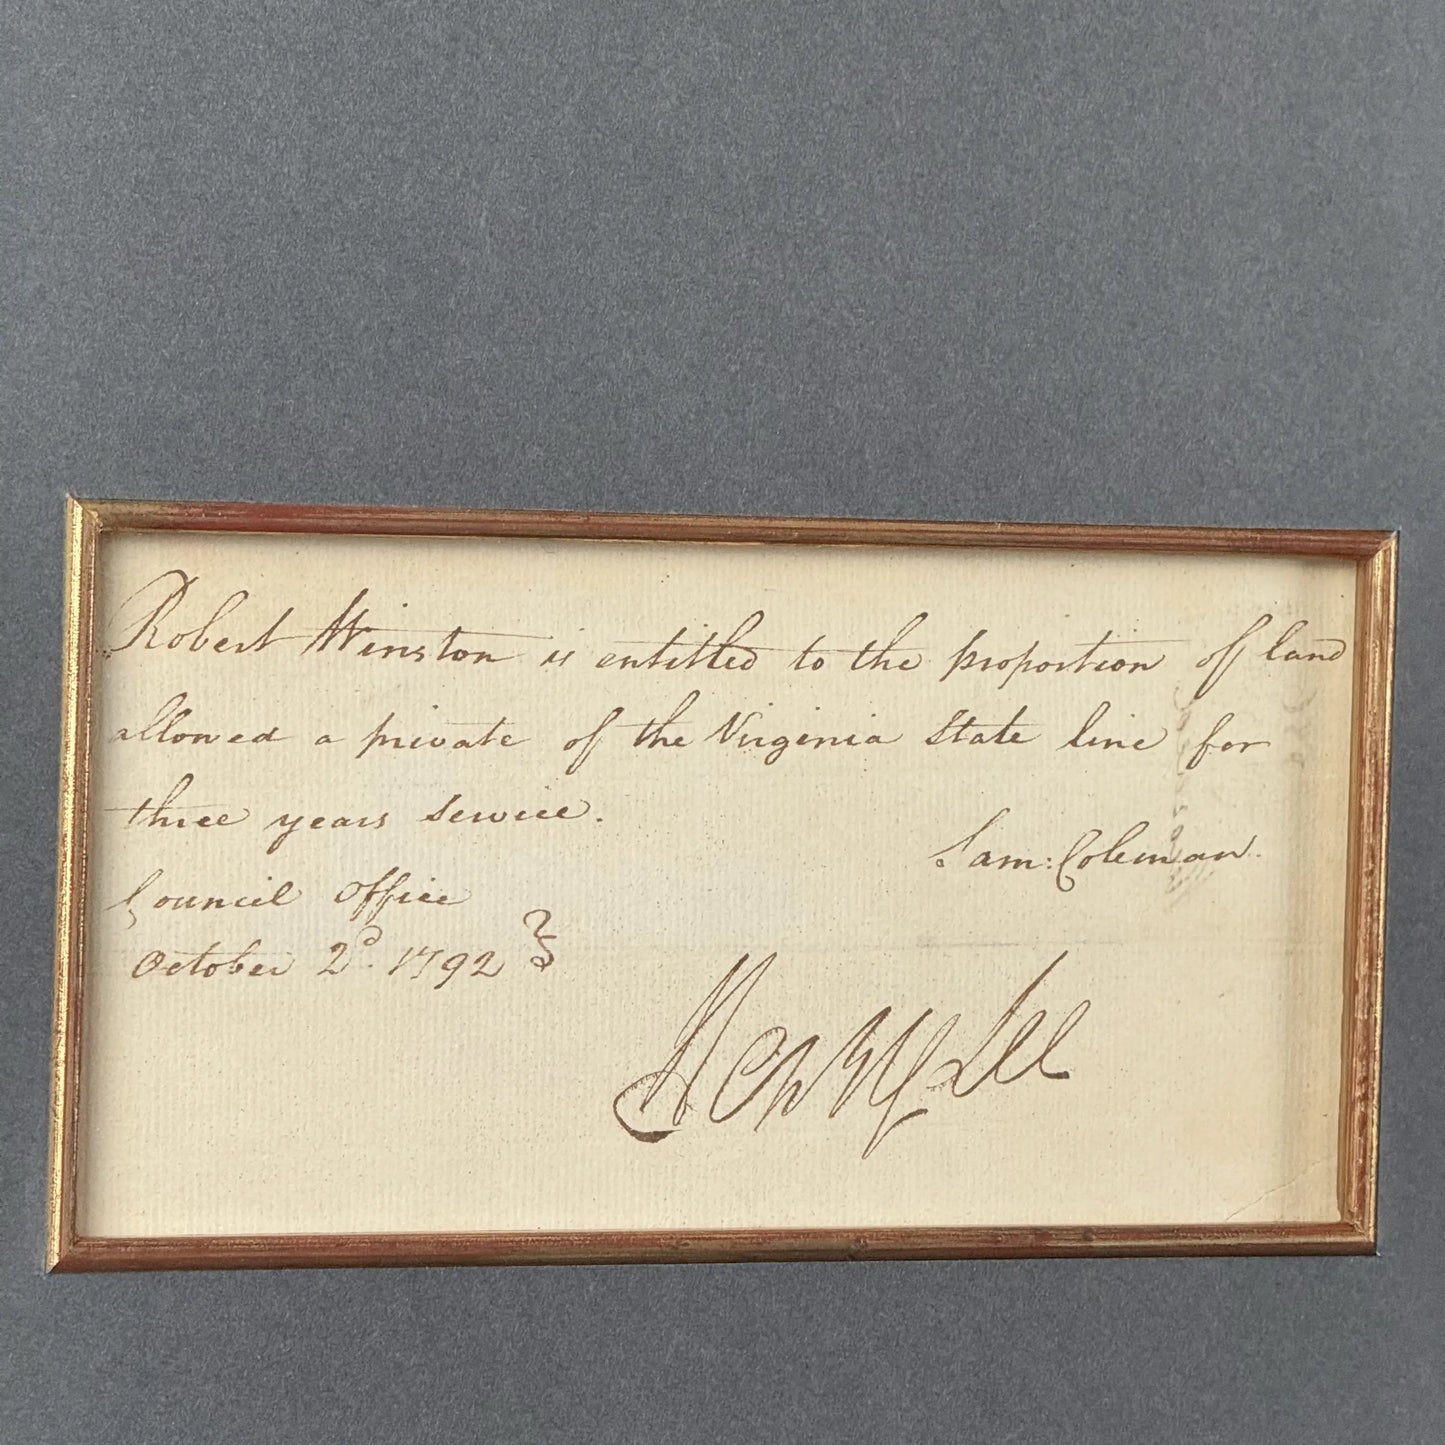 Robert Winston is entitled to the proportion of land
allowed a private of the Virginia State line for
three years service.
Sam: Coleman.
Council Office
October 2d. 1792
Henry Lee